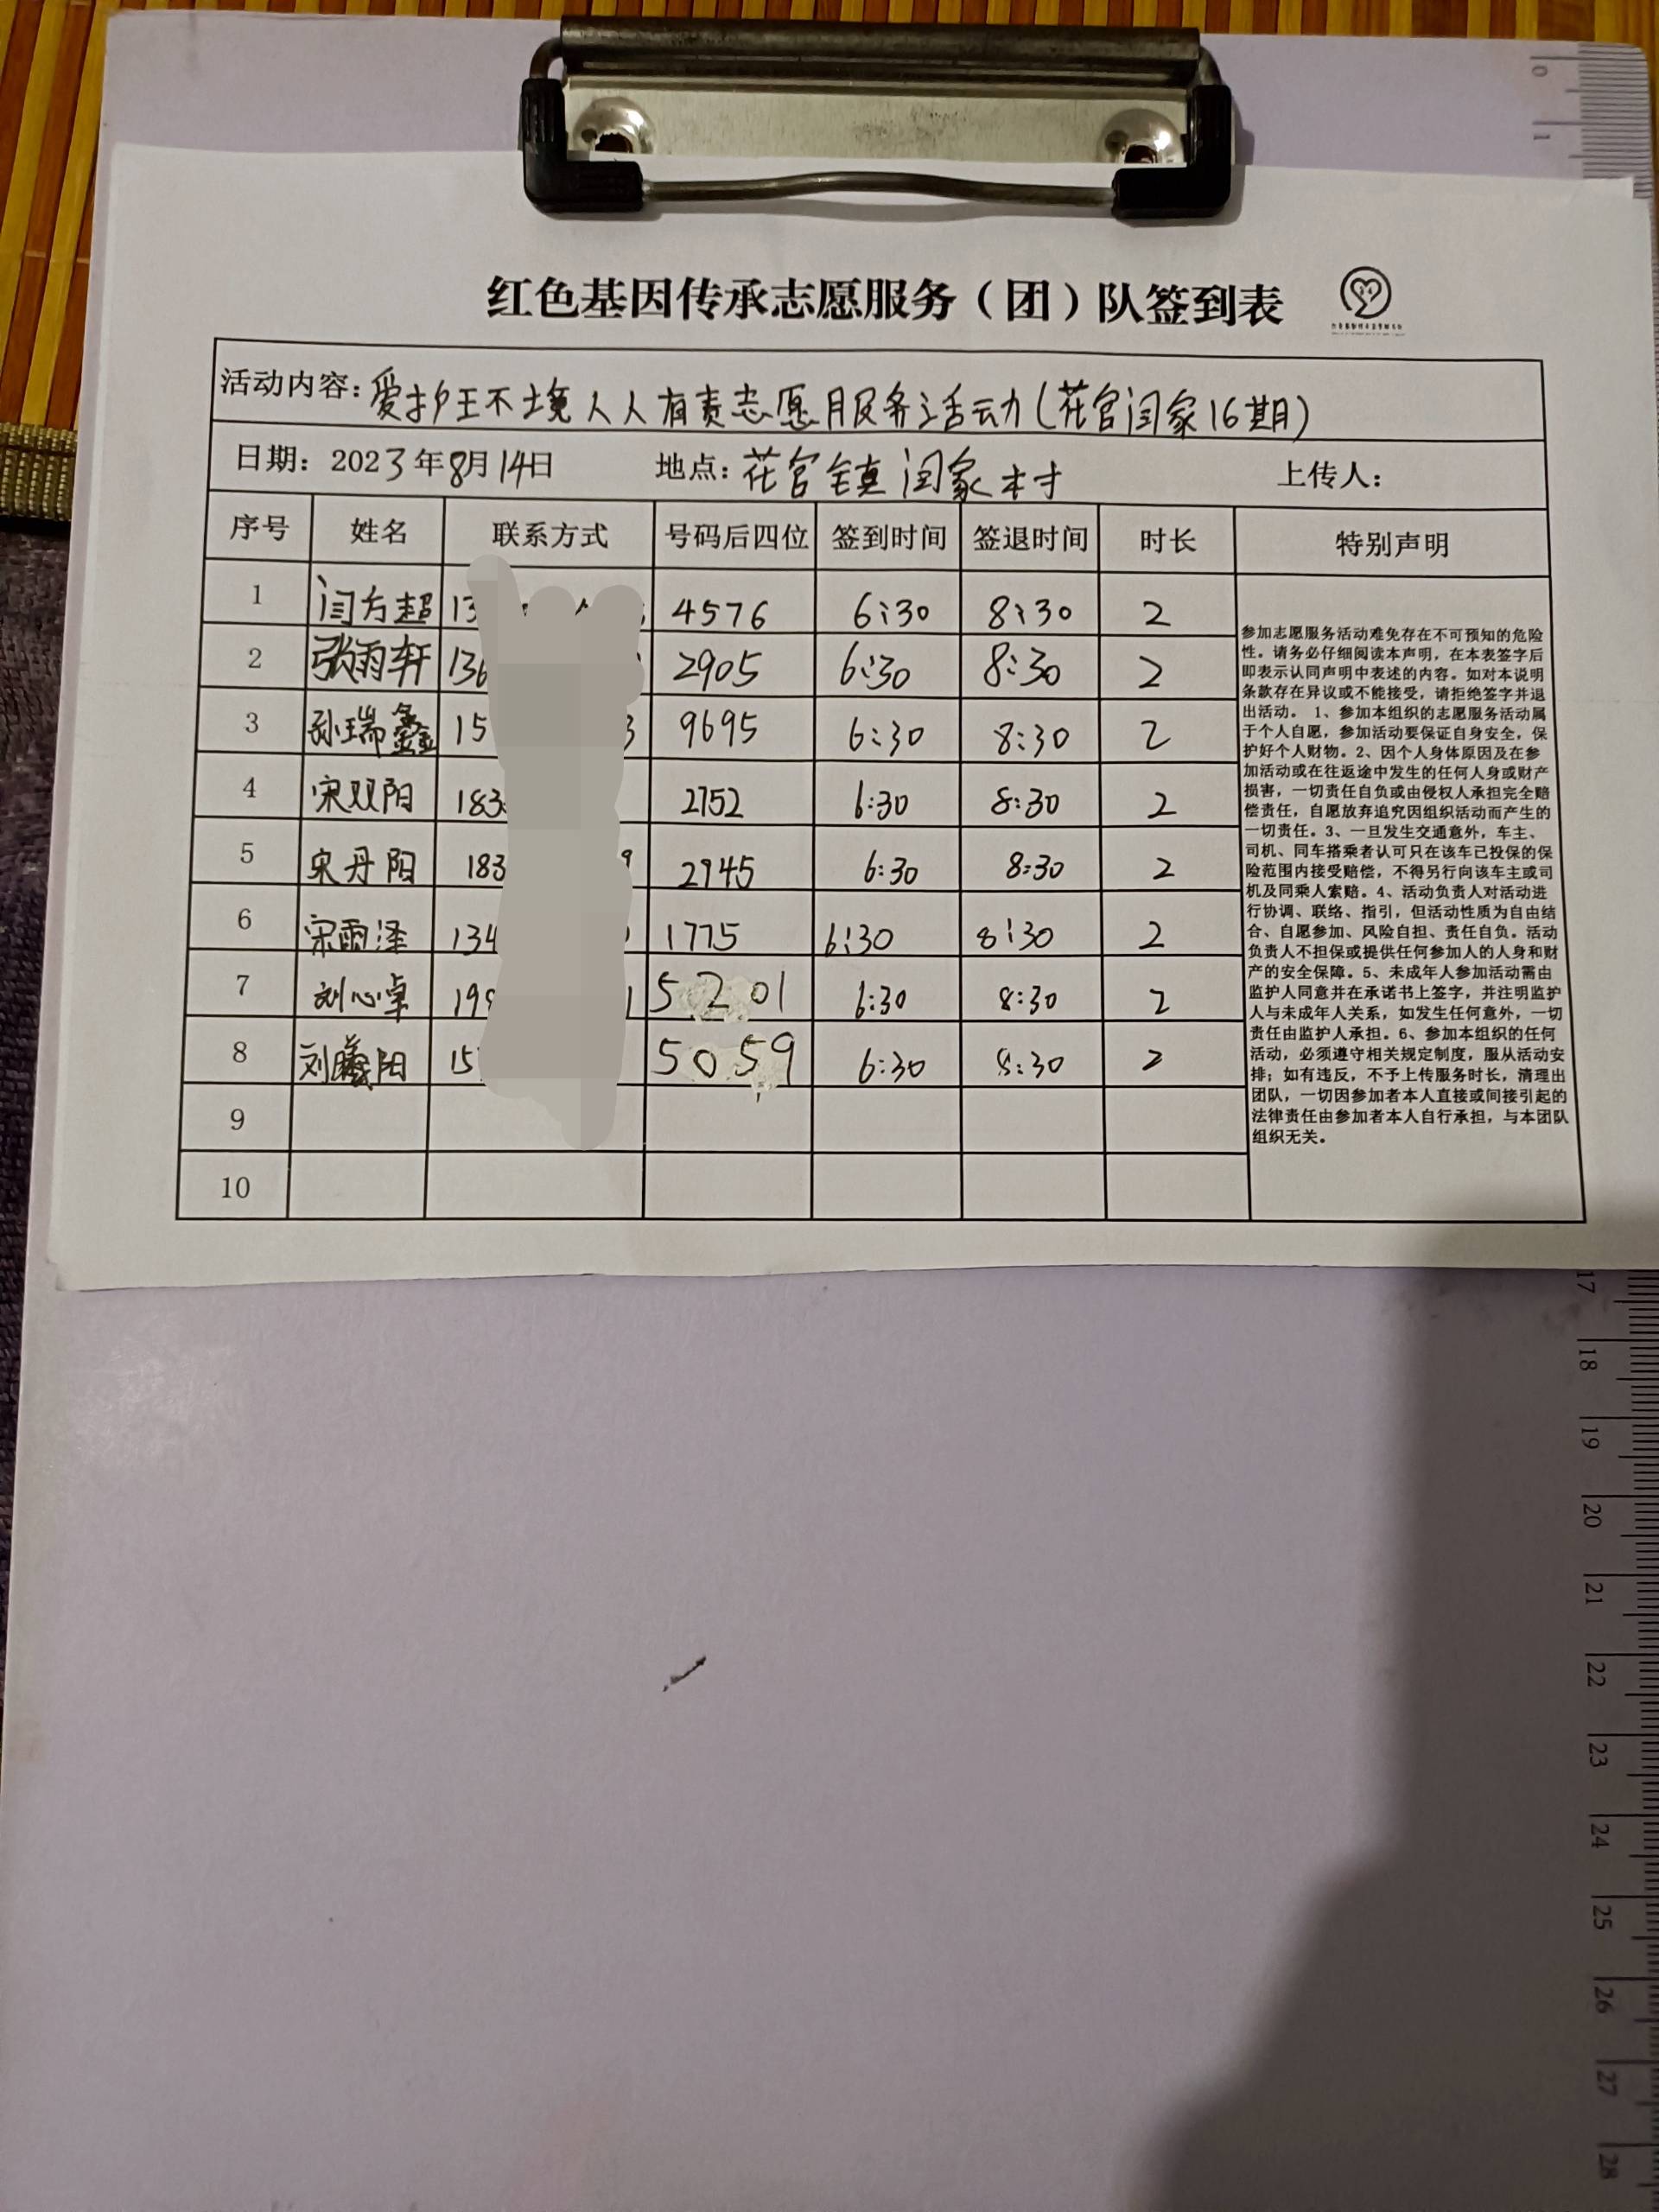 红色基因传承志愿服务（团）队签到表
活动内容：爱护环境人人有责志愿服务活动(花官闫家16期)
日期：2023年8月14日 地点：花官镇闫家村 上传人：
序号 姓名 联系方式 号码后四位 签到时间 签退时间 时长 特别声明
1 闫方超 13 4576 6:30 8:30 2
2 张雨轩 136 2905 6:30 8:30 2
3 孙瑞鑫 15 3 9695 6:30 8:30 2
4 宋双阳 183 2752 6:30 8:30 2
5 宋丹阳 183 9 2945 6:30 8:30 2
6 宋雨泽 134 1775 6:30 8:30 2
7 刘心卓 199 1 5201 6:30 8:30 2
8 刘曦阳 15 5059 6:30 8:30 2
9
10
参加志愿服务活动难免存在不可预知的危险
性。请务必仔细阅读本声明，在本表签字后
即表示认同声明中表述的内容。如对本说明
条款存在异议或不能接受，请拒绝签字并退
出活动。 1、参加本组织的志愿服务活动属
于个人自愿，参加活动要保证自身安全，保
护好个人财物。2、因个人身体原因及在参
加活动或在往返途中发生的任何人身或财产
损害，一切责任自负或由侵权人承担完全赔
偿责任，自愿放弃追究因组织活动而产生的
一切责任。3、一旦发生交通意外，车主、
司机、同车搭乘者认可只在该车已投保的保
险范围内接受赔偿，不得另行向该车主或司
机及同乘人索赔。4、活动负责人对活动进
行协调、联络、指引，但活动性质为自由结
合、自愿参加、风险自担、责任自负。活动
负责人不担保或提供任何参加人的人身和财
产的安全保障。5、未成年人参加活动需由
监护人同意并在承诺书上签字，并注明监护
人与未成年人关系，如发生任何意外，一切
责任由监护人承担。6、参加本组织的任何
活动，必须遵守相关规定制度，服从活动安
排；如有违反，不予上传服务时长，清理出
团队，一切因参加者本人直接或间接引起的
法律责任由参加者本人自行承担，与本团队
组织无关。
0
1
17
18
19
20
21
22
23
24
25
26
27
28